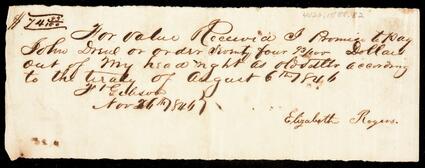 $74 33/100
For value Received I Promis to pay
John Drue or order Seventy four 33/100 Dollars
out of My head right as old settler according
to the treaty of August 6th 1846
Ft Gibson
Nov 26th 1846
Elizabeth Rogers.